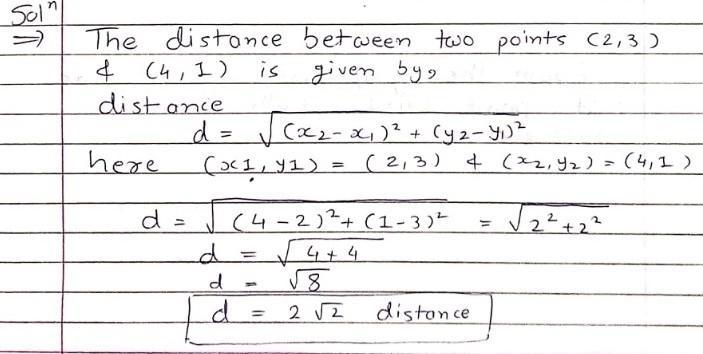 Solⁿ
⇒ The distance between two points (2,3)
& (4,1) is given by,
distance
d = √(x₂-x₁)² + (y₂-y₁)²
here (x1, y1) = (2,3) & (x₂,y₂) = (4,1)
d = √(4-2)²+(1-3)² = √2²+2²
d = √4+4
d = √8
d = 2√2 distance